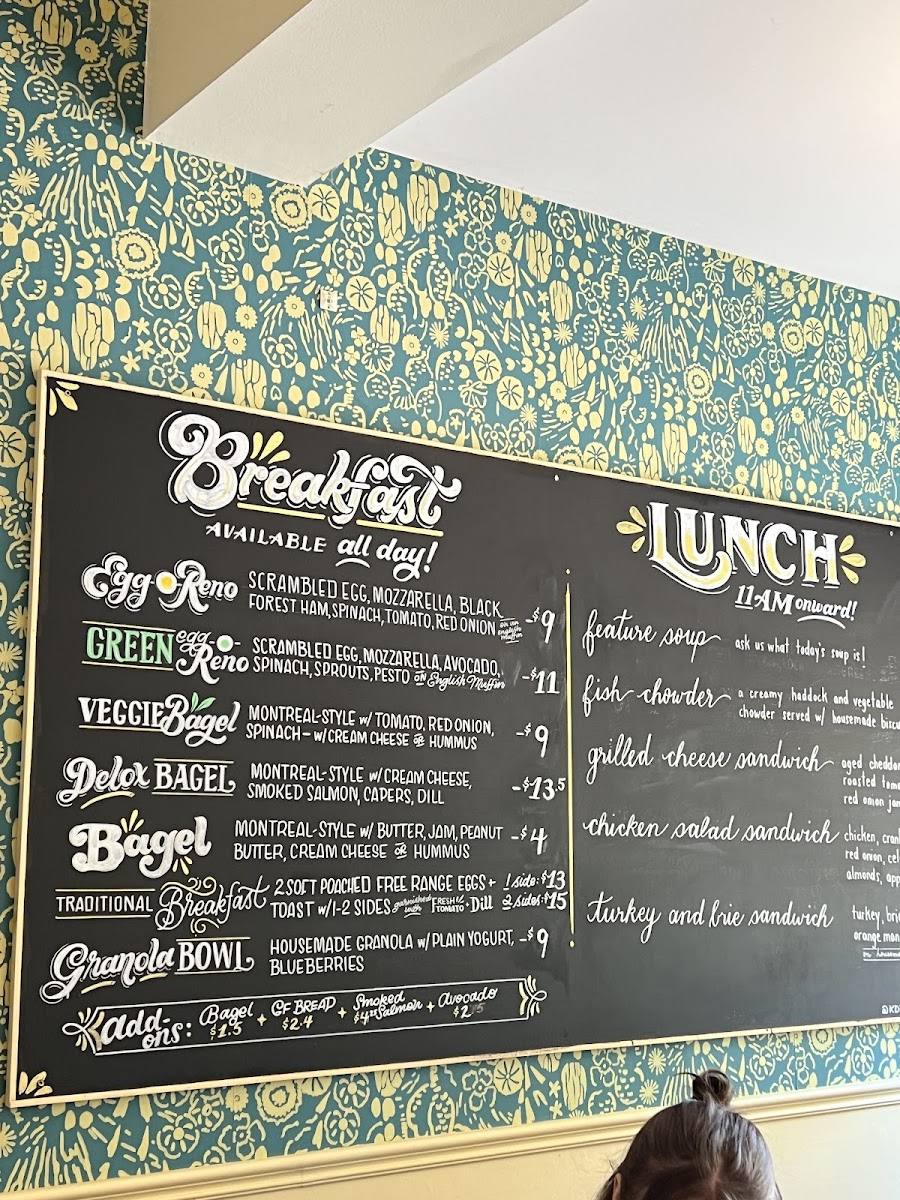 Breakfast
AVAILABLE all day!
Egg Reno
SCRAMBLED EGG, MOZZARELLA, BLACK
FOREST HAM, SPINACH, TOMATO, RED ONION on an english muffin -$9
GREEN egg Reno
SCRAMBLED EGG, MOZZARELLA, AVOCADO,
SPINACH, SPROUTS, PESTO on English Muffin -$11
VEGGIE Bagel
MONTREAL-STYLE w/ TOMATO, RED ONION,
SPINACH - w/ CREAM CHEESE or HUMMUS -$9
Delox BAGEL
MONTREAL-STYLE w/ CREAM CHEESE,
SMOKED SALMON, CAPERS, DILL -$13.5
Bagel
MONTREAL-STYLE w/ BUTTER, JAM, PEANUT
BUTTER, CREAM CHEESE or HUMMUS -$4
TRADITIONAL Breakfast
2 SOFT POACHED FREE RANGE EGGS + 1 side: $13
TOAST w/ 1-2 SIDES garnished with FRESH TOMATO + Dill 2 sides: $15
Granola BOWL
HOUSEMADE GRANOLA w/ PLAIN YOGURT, -$9
BLUEBERRIES
Add-ons: Bagel $1.5 + GF BREAD $2.4 + Smoked Salmon $4 + Avocado $2
LUNCH
11AM onward!
feature soup
ask us what today's soup is!
fish chowder
a creamy haddock and vegetable
chowder served w/ housemade
grilled cheese sandwich
aged
roasted
red onion
chicken salad sandwich
chicken,
red onion,
almonds,
turkey and brie sandwich
turkey,
orange